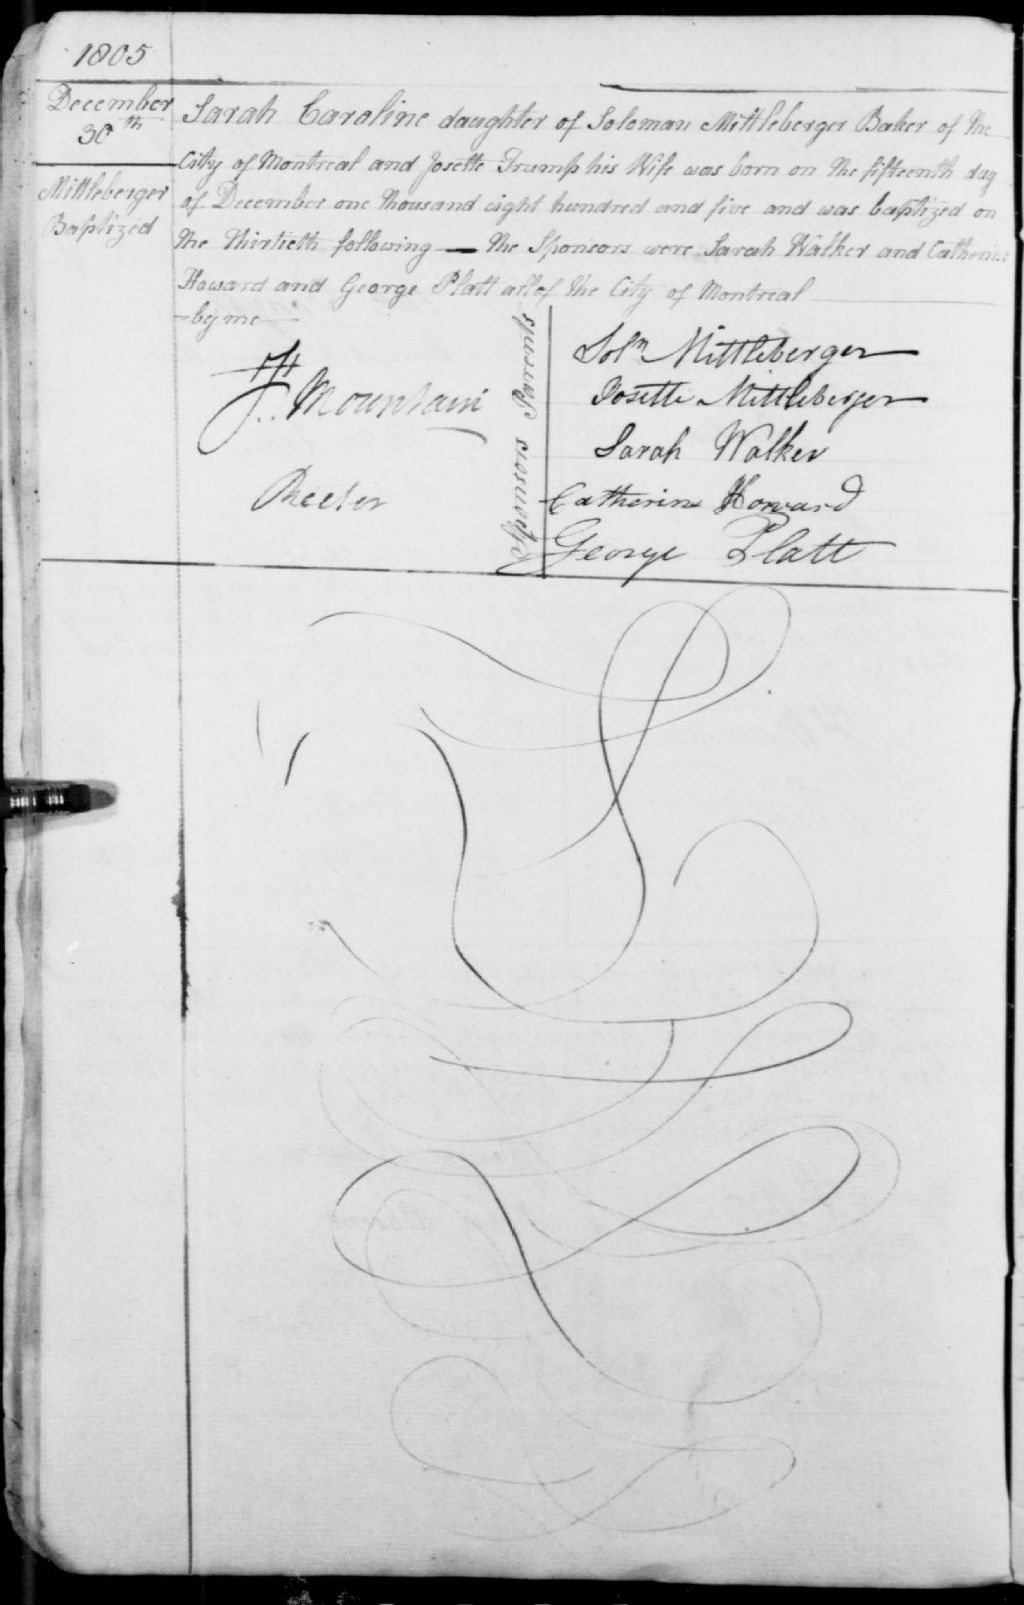 1805
December
30th
Mittleberger
Baptized
Sarah Caroline daughter of Soloman Mittleberger Baker of the
City of Montreal and Josette Trump his Wife was born on the fifteenth day
of December one thousand eight hundred and five and was baptized on
the thirtieth following — the Sponsors were Sarah Walker and Catherine
Howard and George Platt all of the City of Montreal
by me
J. Mountain
Rector
Sponsors Parents
Soln Mittleberger
Josette Mittleberger
Sarah Walker
Catherine Howard
George Platt